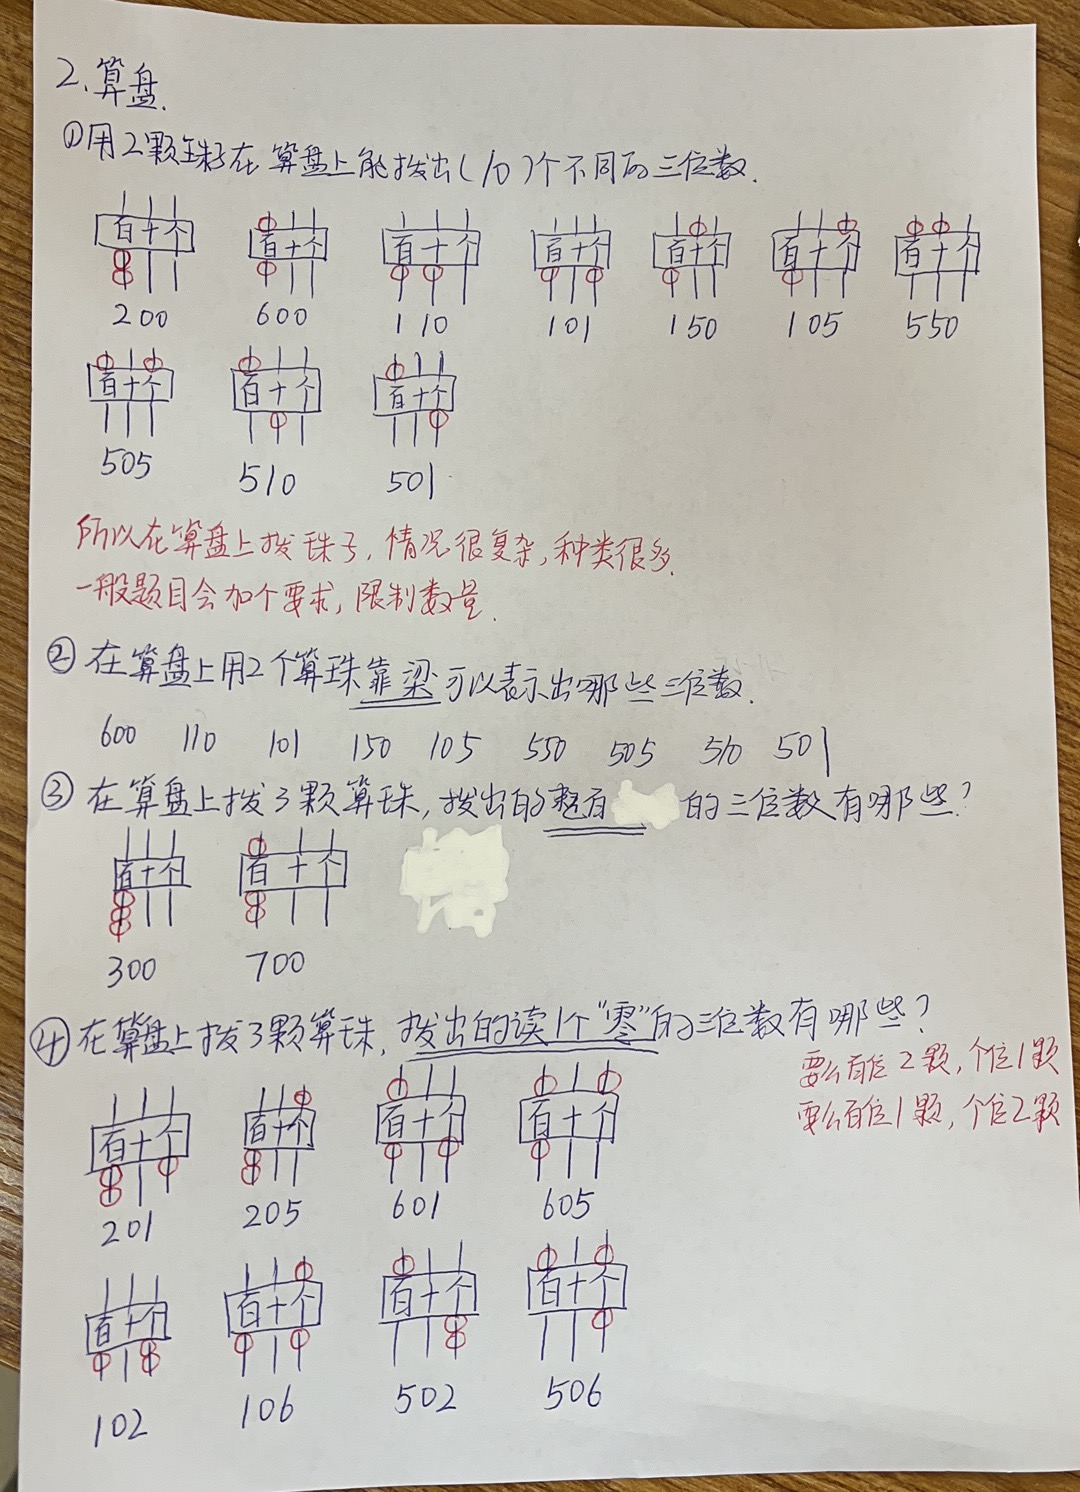 2、算盘.
①用2颗珠子在算盘上能拨出(10)个不同的三位数.
百十个 百十个 百十个 百十个 百十个 百十个 百十个
200 600 110 101 150 105 550
百十个 百十个 百十个
505 510 501
所以在算盘上拨珠子,情况很复杂,种类很多.
一般题目会加个要求,限制数量.
②在算盘上用2个算珠靠梁可以表示出哪些三位数.
600 110 101 150 105 550 505 510 501
③在算盘上拨3颗算珠,拨出的 的三位数有哪些?
百十个 百十个
300 700
④在算盘上拨3颗算珠,拨出的读1个“零”的三位数有哪些?
要么百位2颗,个位1颗
要么百位1颗,个位2颗
百十个 百十个 百十个 百十个
201 205 601 605
百十个 百十个 百十个 百十个
102 106 502 506